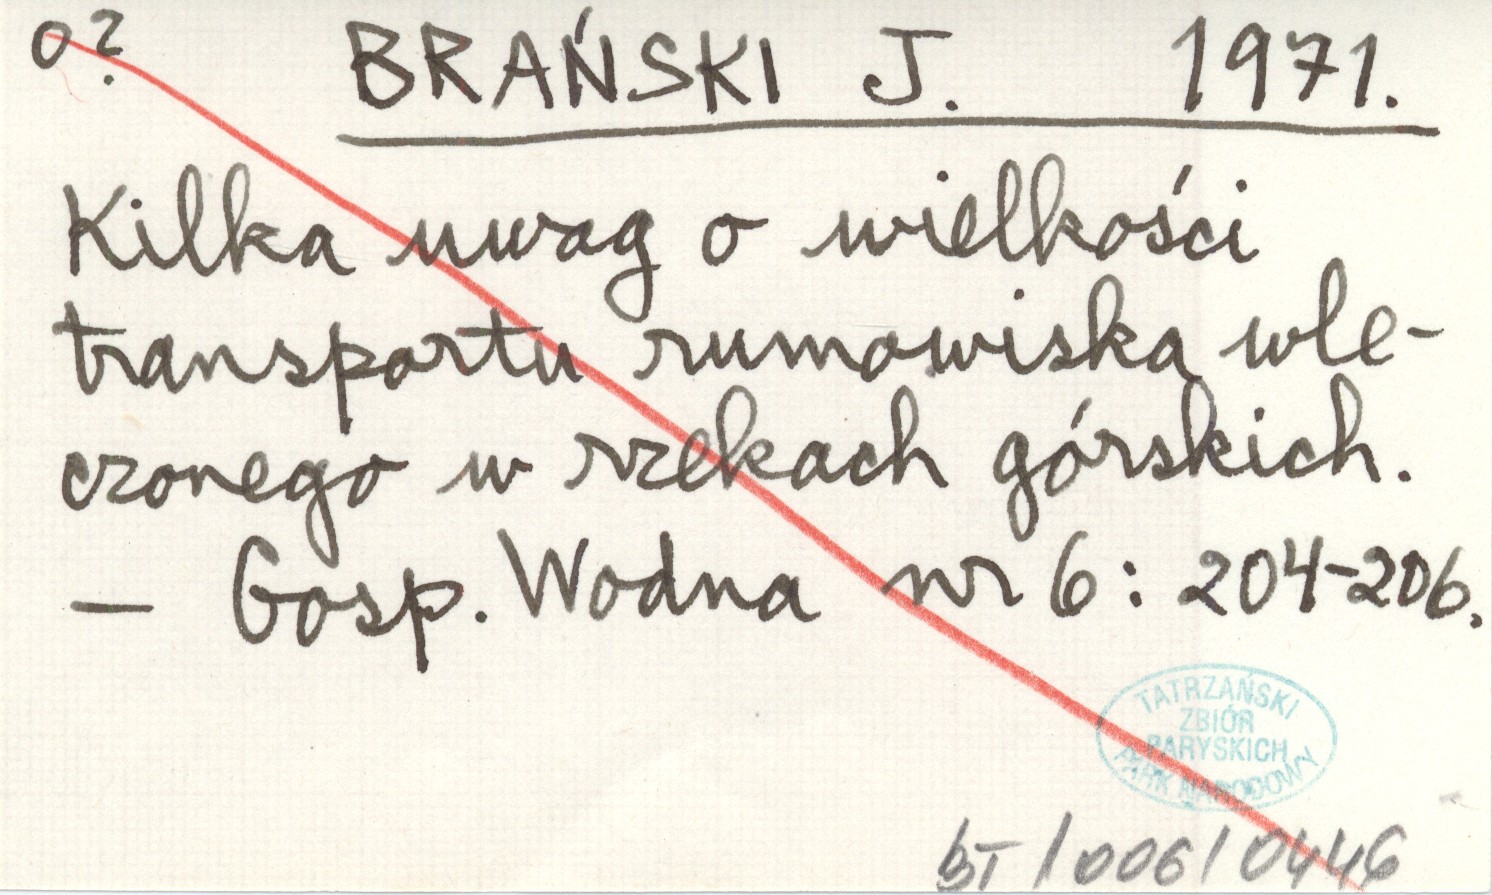 o?
BRAŃSKI J. 1971.
Kilka uwag o wielkości
transportu rumowiska wle-
czonego w rzekach górskich.
— Gosp. Wodna nr 6: 204-206.
TATRZAŃSKI
ZBIÓR
PARYSKICH
PARK NARODOWY
BT/006/0446